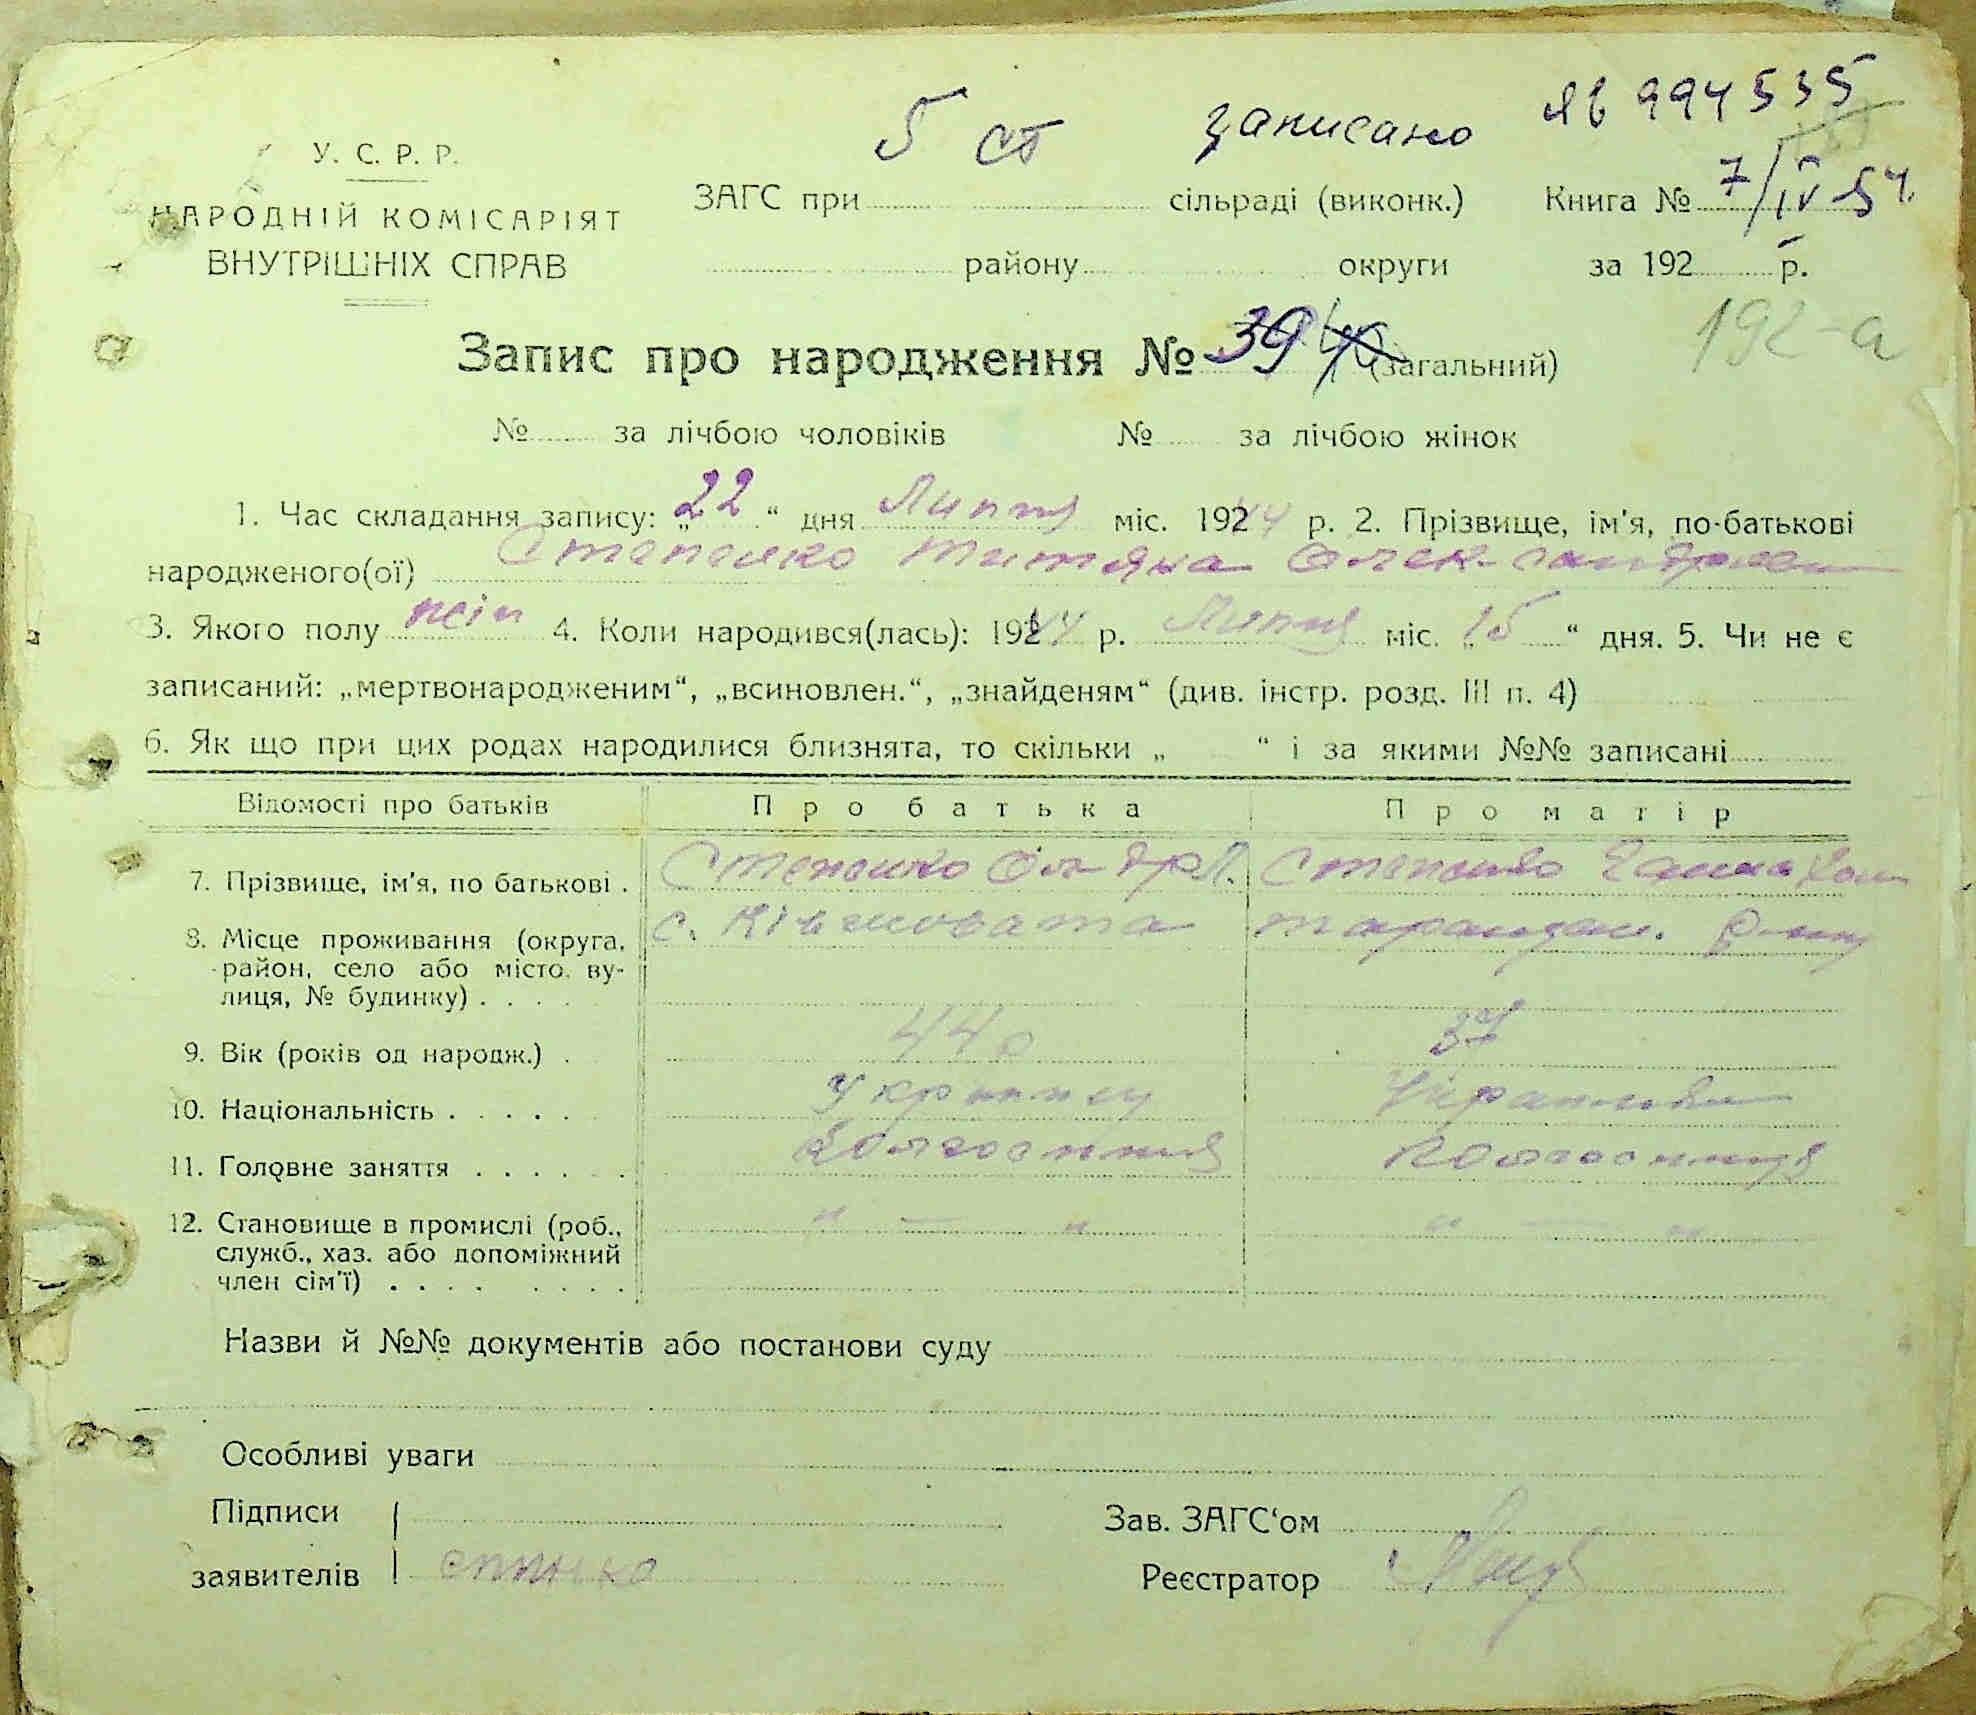 5 ст записано ЯБ 994535
У. С. Р. Р.
НАРОДНІЙ КОМІСАРІЯТ
ВНУТРІШНІХ СПРАВ
ЗАГС при сільраді (виконк.) Книга № 7/IV 54.
району округи за 192 р.
192-а
Запис про народження № 39 (загальний)
№ за лічбою чоловіків № за лічбою жінок
1. Час складання запису: „22“ дня Липня міс. 1944 р. 2. Прізвище, ім'я, по-батькові
народженого(ої) Степенко Титяна Олександров
3. Якого полу жін 4. Коли народився(лась): 1944 р. Липня міс. „15“ дня. 5. Чи не є
записаний: „мертвонародженим“, „всиновлен.“, „знайденям“ (див. інстр. розд. III п. 4)
6. Як що при цих родах народилися близнята, то скільки „ “ і за якими №№ записані
Відомості про батьків Про батька Про матір
7. Прізвище, ім'я, по батькові . Степенко Степенко Ганна
8. Місце проживання (округа, район, село або місто, вулиця, № будинку) . . . . с. Ківшовата
9. Вік (років од народж.) . 44 37
10. Національність . . . . . Українец Українка
11. Головне заняття . . . . . . Колгоспник Колгоспниця
12. Становище в промислі (роб., служб., хаз. або допоміжний член сім'ї) . . . . . . . . " — " " — "
Назви й №№ документів або постанови суду
Особливі уваги
Підписи
заявителів
Зав. ЗАГС'ом
Реєстратор